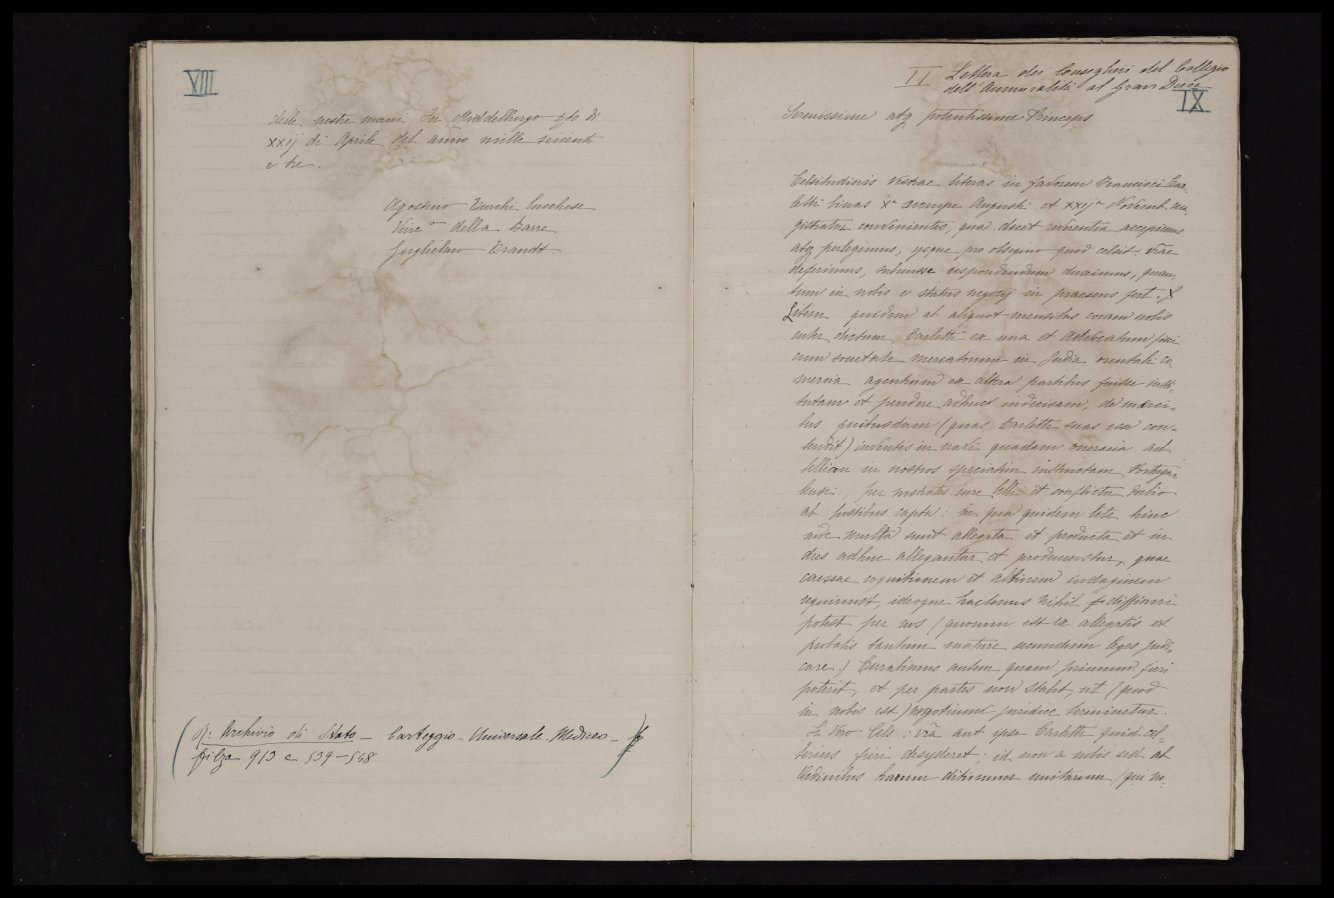 VIII
delle nostre mani In Middelburgo q.to dì
xxij di Aprile del anno mille seicento
e tre.
Agostino Lucchese
Vinc.o della Barre
Guglielmo Brandt
R. Archivio di Stato – Carteggio Universale Mediceo –
filza 913 c 539–548
II Lettera dei Consiglieri del Collegio
dell'Ammiralità al Gran Duca
IX
Serenissime atq potentissime Princeps
Celsitudinis Vestrae literas in favorem Francisci Car
letti binas Xa nempe Augusti et xxija Novemb.
convenientes, qua decet reverentia accepimus
atq perlegimus, ijsque pro obsequio quod celsit. vrae
deferimus, respondendum duximus, quan
tum in nobis e status negotij in praesens fert.
Litem quidem ab aliquot mensibus coram nobis
inter dictum Carletti ex una et Advocatum fisci
cum societate mercatorum in India orientali co
mercia agentium ex altera partibus fuisse insti
tutam et pendere adhuc indecisam, de merci
bus quibusdam (quas Carletti suas esse con
tendit) inventis in navi quadam oneraria ad
bellum in nostros speciatim instructam
per nostrates jure belli et conflictu
ab hostibus capta: in qua quidem lite hinc
inde multa sunt allegata et producta et in
dies adhuc allegantur et producuntur, quae
causae cognitionem et altiorem indaginem
requirunt, ideoque hactenus nihil diffiniri
potest per nos (quorum est ex allegatis et
probatis tantum mature secundum leges judi
care.) Curabimus autem quam primum fieri
poterit, et per partes non stabit, ut (quod
in nobis est) negotium juridice terminetur.
Si vero Cels: vra aut ipse Carletti quid cel
terius fieri desyderet, id non a nobis sed ab
Ordinibus harum ditionum unitarum (qui no